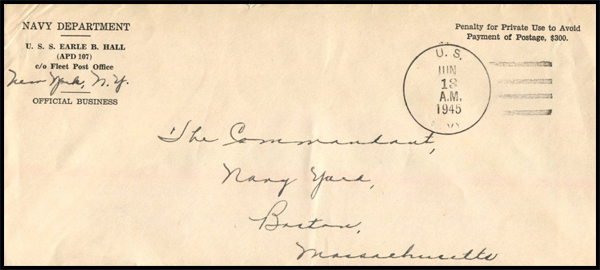 NAVY DEPARTMENT
U. S. S. EARLE B. HALL
(APD 107)
c/o Fleet Post Office
New York, N.Y.
OFFICIAL BUSINESS
Penalty for Private Use to Avoid
Payment of Postage, $300.
U. S.
JUN
13
A.M.
1945
The Commandant,
Navy Yard,
Boston,
Massachusetts